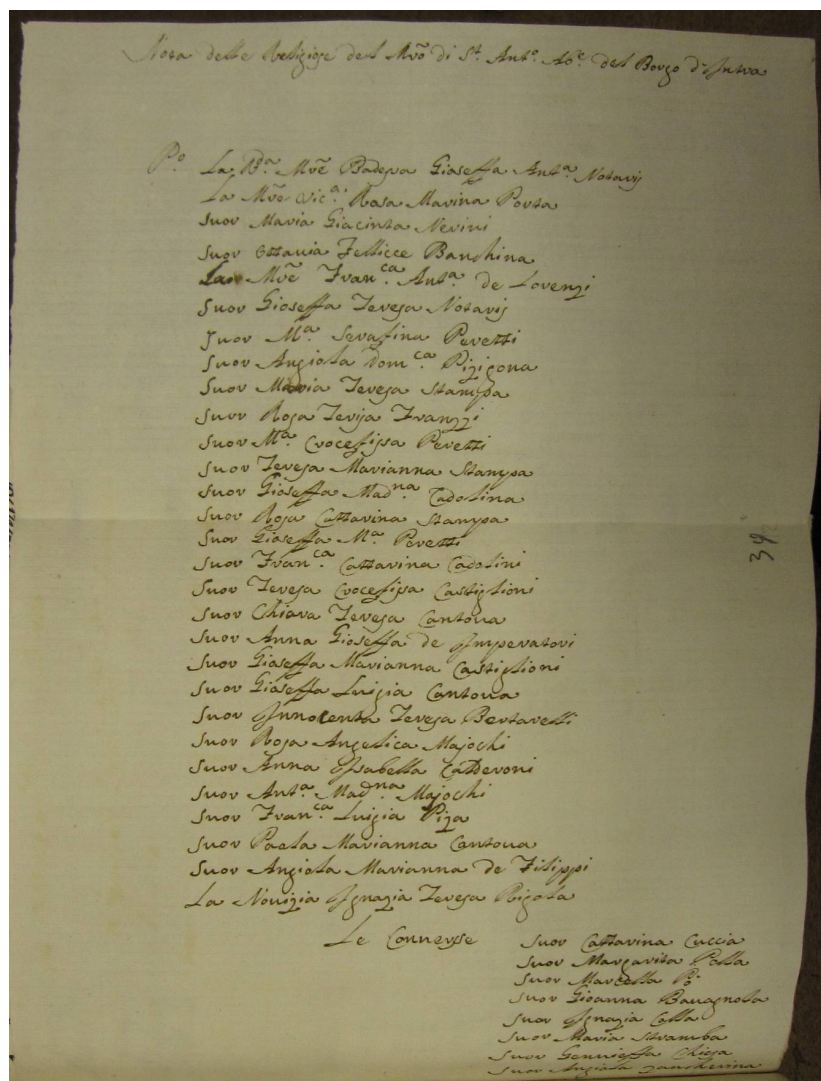 Nota delle Religiose del Mrō di St. Anto. Abe. del Borgo d'Intra
Po. La Rda. Mrē Badessa Gioseffa Anta. Notarij
La Mrē Vica. Rosa Marina Porta
Suor Maria Giacinta Nerini
Suor Ottavia Fellicce Banchina
La Mrē Franca. Anta. de Lorenzi
Suor Gioseffa Teresa Notarij
Suor Ma. Serafina Peretti
Suor Angiola Domca. Pizigona
Suor Maria Teresa Stampa
Suor Rosa Terija Franzzi
Suor Ma. Crocefissa Peretti
Suor Teresa Marianna Stampa
Suor Gioseffa Madna. Cadolina
Suor Rosa Cattarina Stampa
Suor Gioseffa Ma. Peretti
Suor Franca. Cattarina Cadolini
Suor Teresa Crocefissa Castiglioni
Suor Chiara Teresa Cantoua
Suor Anna Gioseffa de Imperatori
Suor Gioseffa Marianna Castiglioni
Suor Gioseffa Luigia Cantoua
Suor Innocenta Teresa Bertarelli
Suor Rosa Angelica Majochi
Suor Anna Isabella Calderoni
Suor Anta. Madna. Majochi
Suor Franca. Luigia Piza
Suor Paola Marianna Cantoua
Suor Angiola Marianna de Filippi
La Nouizia Ignazia Teresa Rigola
Le Connersse
Suor Cattarina Cuccia
Suor Margarita Polla
Suor Marcella
Suor Gioanna Bauagnola
Suor Ignazia Colla
Suor Maria Stramba
Suor Genuieffa Chiesa
Suor Angiola Zancherina
39